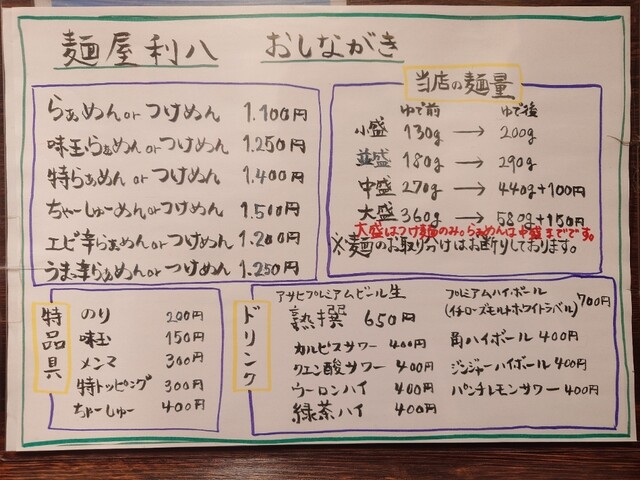 麺屋利八 おしながき
らぁめんorつけめん 1.100円
味玉らぁめんorつけめん 1.250円
特らぁめんorつけめん 1.400円
ちゃーしゅーめんorつけめん 1.500円
エビ辛らぁめんorつけめん 1.200円
うま辛らぁめんorつけめん 1.250円
当店の麺量
ゆで前 ゆで後
小盛 130g → 200g
並盛 180g → 290g
中盛 270g → 440g+100円
大盛 360g → 580g+150円
大盛はつけ麺のみ。らぁめんは中盛までです。
※麺のお取り分けはお断りしております。
特品具
のり 200円
味玉 150円
メンマ 300円
特トッピング 300円
ちゃーしゅー 400円
ドリンク
アサヒプレミアムビール生
熟撰 650円
カルピスサワー 400円
クエン酸サワー 400円
ウーロンハイ 400円
緑茶ハイ 400円
プレミアムハイボール
(イチローズモルトホワイトラベル) 700円
角ハイボール 400円
ジンジャーハイボール 400円
パンチレモンサワー 400円